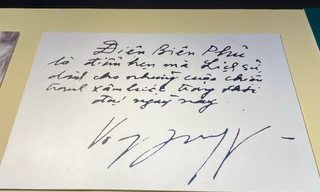 Điện Biên Phủ
là điểm hẹn mà lịch sử
dành cho những cuộc chiến
tranh xâm lược trong thời
đại ngày nay.